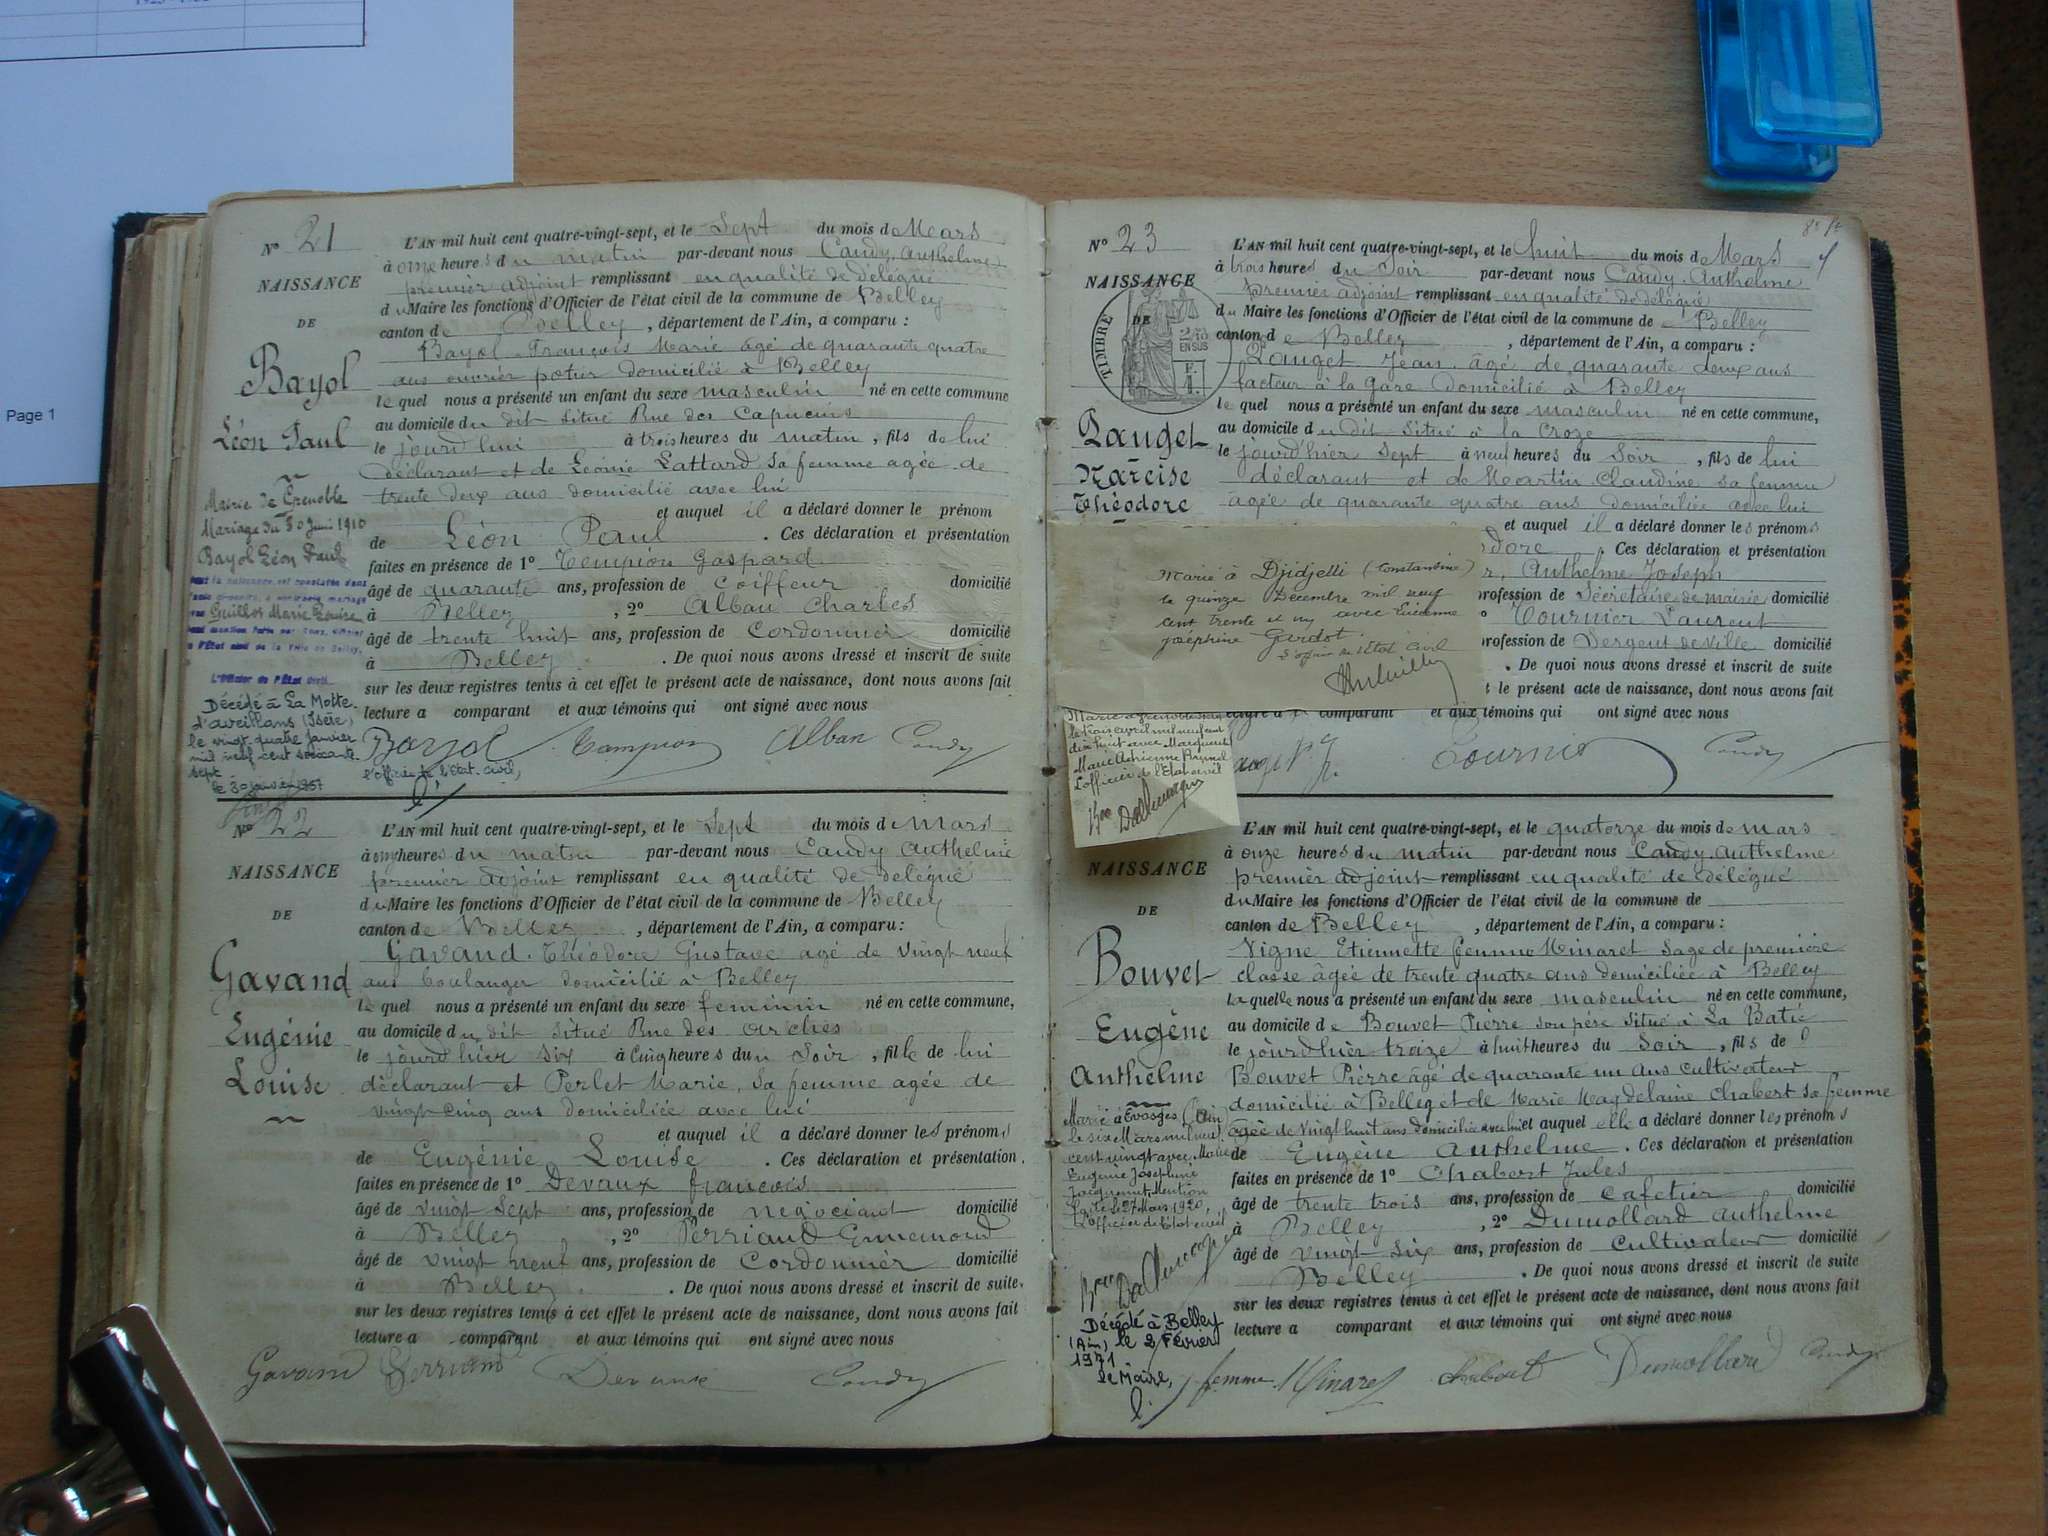 Page 1
N° 21
NAISSANCE
DE
Bayol
Léon Paul
Mairie de Grenoble
Mariage du 30 Juin 1910
Bayol Léon Paul
Guillot Marie Louise
L'Officier de l'État Civil
Décédé à La Motte
d'aveillans (Isère)
le vingt quatre janvier
mil neuf cent soixante
sept
le 30 janvier 1967
l'officier de l'état-civil,
L'AN mil huit cent quatre-vingt-sept, et le Sept du mois de Mars
à onze heures du matin par-devant nous Candy Anthelme
premier adjoint remplissant en qualité de délégué
du Maire les fonctions d'Officier de l'état civil de la commune de Belley
canton de Belley, département de l'Ain, a comparu :
Bayol François Marie âgé de quarante quatre
ans ouvrier potier domicilié à Belley
lequel nous a présenté un enfant du sexe masculin né en cette commune
au domicile du dit situé Rue des Capucins
le jourd'hui à trois heures du matin, fils de lui
déclarant et de Léonie Lattard sa femme agée de
trente deux ans domicilié avec lui
et auquel il a déclaré donner le prénom
de Léon Paul. Ces déclaration et présentation
faites en présence de 1° Tempion Gaspard
âgé de quarante ans, profession de Coiffeur domicilié
à Belley, 2° Alban Charles
âgé de trente huit ans, profession de Cordonnier domicilié
à Belley. De quoi nous avons dressé et inscrit de suite
sur les deux registres tenus à cet effet le présent acte de naissance, dont nous avons fait
lecture a comparant et aux témoins qui ont signé avec nous
Bayol Tampion Alban Candy
N° 22
NAISSANCE
DE
Gavand
Eugénie
Louise
L'AN mil huit cent quatre-vingt-sept, et le Sept du mois de Mars
à onze heures du matin par-devant nous Candy Anthelme
premier adjoint remplissant en qualité de délégué
du Maire les fonctions d'Officier de l'état civil de la commune de Belley
canton de Belley, département de l'Ain, a comparu :
Gavand Théodore Gustave agé de vingt neuf
ans boulanger domicilié à Belley
lequel nous a présenté un enfant du sexe feminin né en cette commune,
au domicile du dit situé Rue des Arches
le jourd'hier six à cinq heures du Soir, fille de lui
déclarant et Perlet Marie, sa femme agée de
vingt cinq ans domiciliée avec lui
et auquel il a déclaré donner les prénoms
de Eugénie Louise. Ces déclaration et présentation
faites en présence de 1° Devaux françois
âgé de vingt Sept ans, profession de negociant domicilié
à Belley, 2° Perriand Ennemond
âgé de vingt neuf ans, profession de Cordonnier domicilié
à Belley. De quoi nous avons dressé et inscrit de suite
sur les deux registres tenus à cet effet le présent acte de naissance, dont nous avons fait
lecture a comparant et aux témoins qui ont signé avec nous
Gavand Perriand Devaux Candy
N° 23
NAISSANCE
DE
TIMBRE
EN SUS
Pauget
Narcise
Théodore
L'AN mil huit cent quatre-vingt-sept, et le huit du mois de Mars
à trois heures du Soir par-devant nous Candy Anthelme
premier adjoint remplissant en qualité de délégué
du Maire les fonctions d'Officier de l'état civil de la commune de Belley
canton de Belley, département de l'Ain, a comparu :
Pauget Jean âgé de quarante deux ans
facteur à la gare domicilié à Belley
lequel nous a présenté un enfant du sexe masculin né en cette commune,
au domicile du dit situé à la Croze
le jourd'hier sept à neuf heures du Soir, fils de lui
déclarant et de Martin Claudine sa femme
agée de quarante quatre ans domiciliée avec lui
et auquel il a déclaré donner les prénoms
dore. Ces déclaration et présentation
r, Anthelme Joseph
profession de Sécrétaire de mairie domicilié
Tournier Laurent
profession de Sergent de ville domicilié
. De quoi nous avons dressé et inscrit de suite
t le présent acte de naissance, dont nous avons fait
comparant et aux témoins qui ont signé avec nous
Tournier Candy
Marié à Djidjelli (Constantine)
le quinze Décembre mil neuf
cent trente et un avec Lucienne
Joséphine Gardot.
l'officier de l'Etat Civil
Marié à Grenoble
le trois avril mil neuf cent
dix huit avec Marguerite
Marie Adrienne Brunel
L'officier de l'Etat civil
NAISSANCE
DE
Bouvet
Eugène
Anthelme
Marié à Evosges (Ain)
le six Mars mil neuf
cent vingt avec Marie
Eugénie Joséphine
Jacquemet. Mention
faite le 27 Mars 1920,
L'officier de l'Etat civil
Décédé à Belley
(Ain) le 2 Février
1971
le Maire,
L'AN mil huit cent quatre-vingt-sept, et le quatorze du mois de mars
à onze heures du matin par-devant nous Candy Anthelme
premier adjoint remplissant en qualité de délégué
du Maire les fonctions d'Officier de l'état civil de la commune de
canton de Belley, département de l'Ain, a comparu :
Vigne Etiennette femme Minaret Sage de première
classe âgée de trente quatre ans domiciliée à Belley
laquelle nous a présenté un enfant du sexe masculin né en cette commune,
au domicile de Bouvet Pierre son père situé à La Batie
le jourd'hier treize à huit heures du Soir, fils de
Bouvet Pierre âgé de quarante un ans cultivateur
domicilié à Belley et de Marie Magdelaine Chabert sa femme
agée de vingt huit ans domiciliée avec lui et auquel elle a déclaré donner les prénoms
de Eugène Anthelme. Ces déclaration et présentation
faites en présence de 1° Chabert Jules
âgé de trente trois ans, profession de Cafetier domicilié
à Belley, 2° Dumollard Anthelme
âgé de vingt six ans, profession de Cultivateur domicilié
Belley. De quoi nous avons dressé et inscrit de suite
sur les deux registres tenus à cet effet le présent acte de naissance, dont nous avons fait
lecture a comparant et aux témoins qui ont signé avec nous
femme Minaret Chabert Dumollard Candy